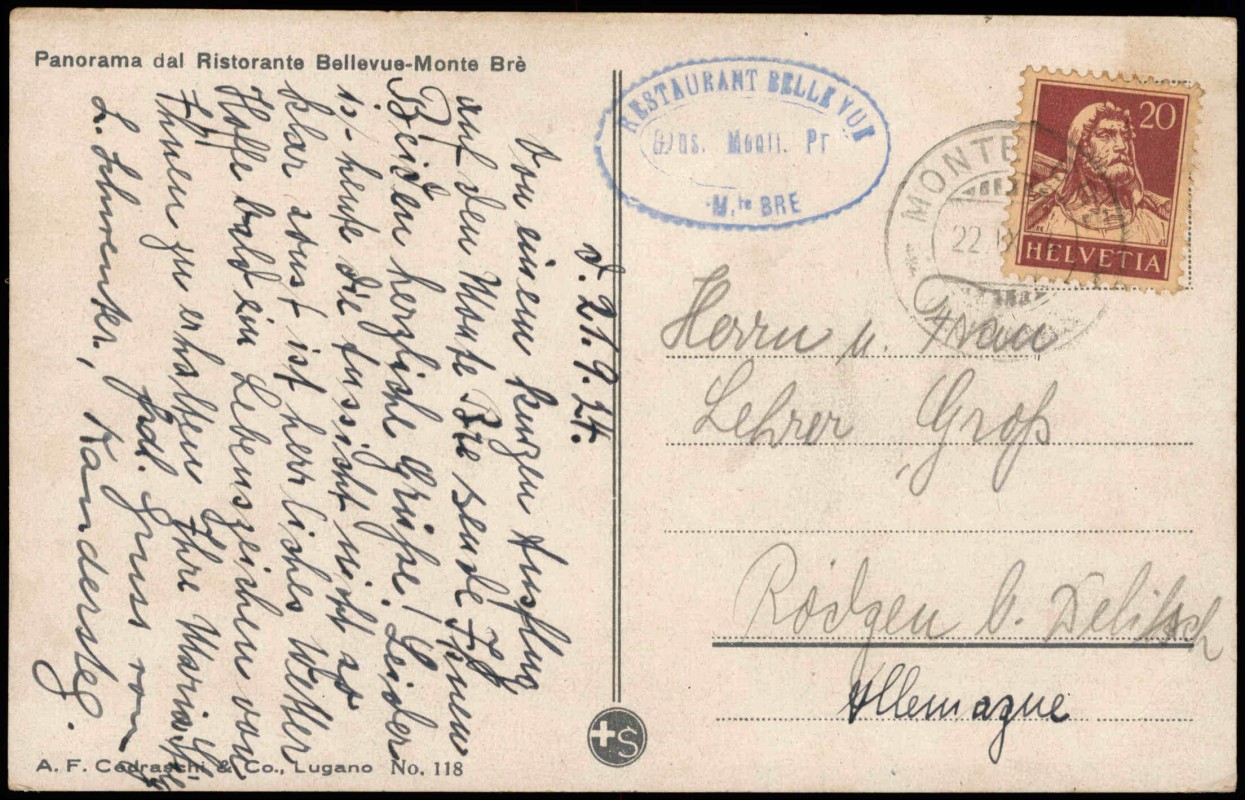 Panorama dal Ristorante Bellevue-Monte Brè
d. 21.9.24.
Von einem kurzen Ausflug
auf den Monte Bre sende Ihnen
Beiden herzliche Grüße! Leider
is- heute die Aussicht nicht so
klar sonst ist herrliches Wetter
Hoffe bald ein Lebenszeichen von
Ihnen zu erhalten Ihre
frdl. Gruss von
L. Kandersteg.
A. F. Cedraschi & Co., Lugano No. 118
RESTAURANT BELLEVUE
M.te BRE
20
HELVETIA
MONTE
22
Herrn u. Frau
Lehrer Groß
Rödgen b. Delitsch
Allemagne
+S